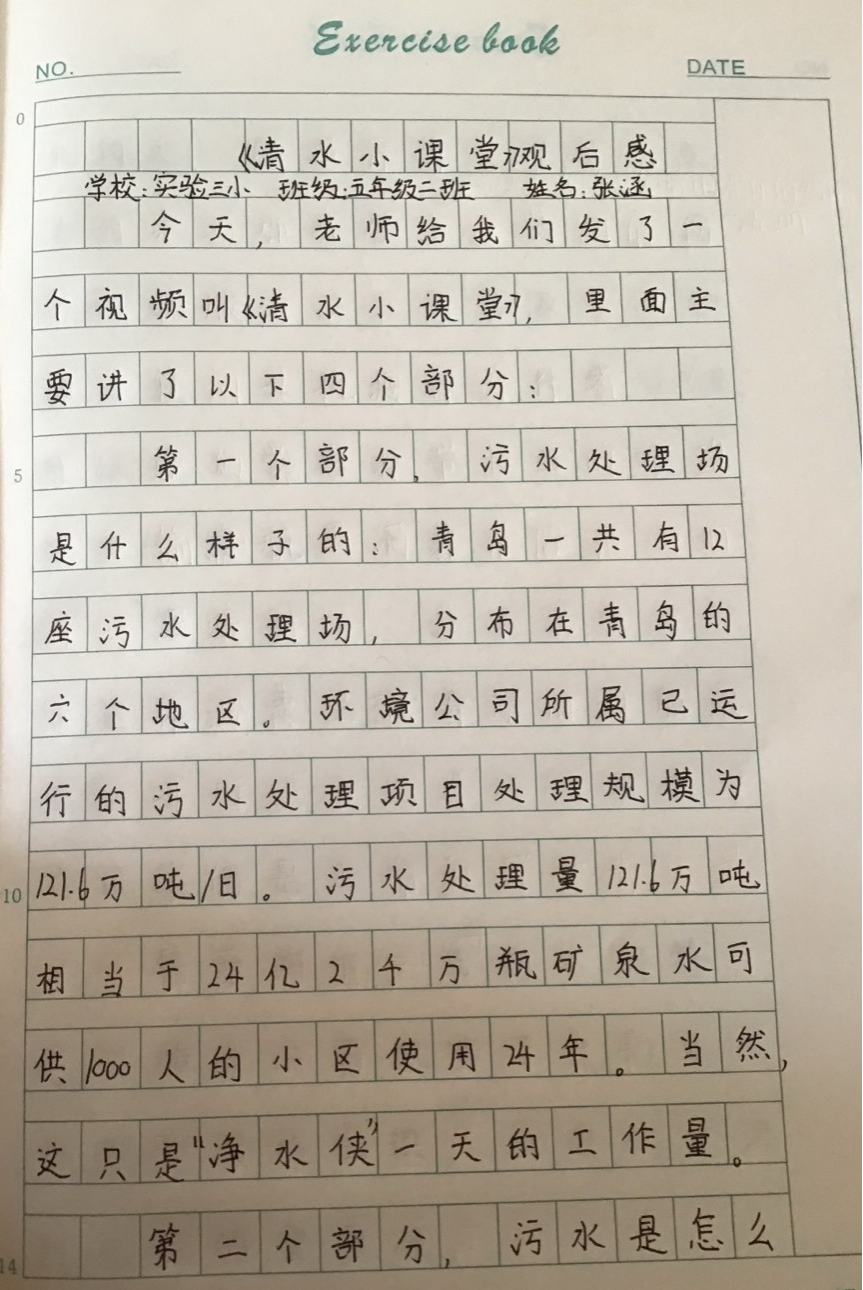 Exercise book
NO.
DATE
0
《清水小课堂》观后感
学校:实验三小 班级:五年级二班 姓名:张涵
今天,老师给我们发了一
个视频叫《清水小课堂》,里面主
要讲了以下四个部分:
5
第一个部分,污水处理场
是什么样子的:青岛一共有12
座污水处理场,分布在青岛的
六个地区。环境公司所属已运
行的污水处理项目处理规模为
10
121.6万吨/日。污水处理量121.6万吨
相当于24亿2千万瓶矿泉水可
供1000人的小区使用24年。当然,
这只是“净水侠”一天的工作量。
14
第二个部分,污水是怎么